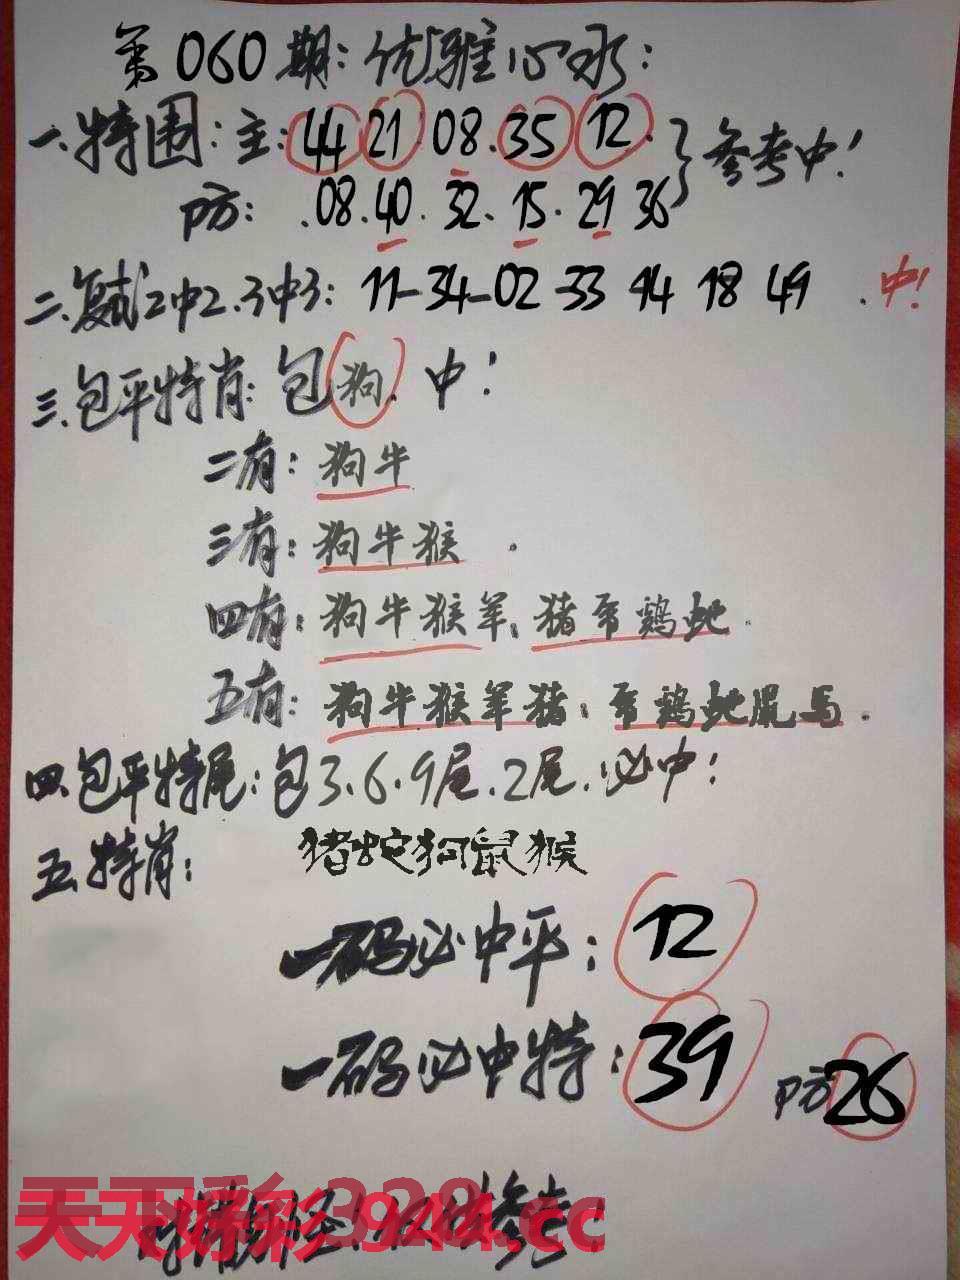 第060期:优雅心水:
一.特围:主:44 21 08.35 12.
参考中!
防:.08.40.32.15.29 36
二.复式2中2.3中3:11-34-02-33 14 18 49.中!
三.包平特肖:包狗.中!
二有:狗牛
三有:狗牛猴.
四有:狗牛猴羊.猪虎鸡蛇.
五有:狗牛猴羊猪.虎鸡蛇鼠马.
四.包平特尾:包3.6.9尾.2尾.必中!
五.特肖:猪蛇狗鼠猴
一码必中平:12
一码必中特:39 防26
参考
天天好彩 3944.cc